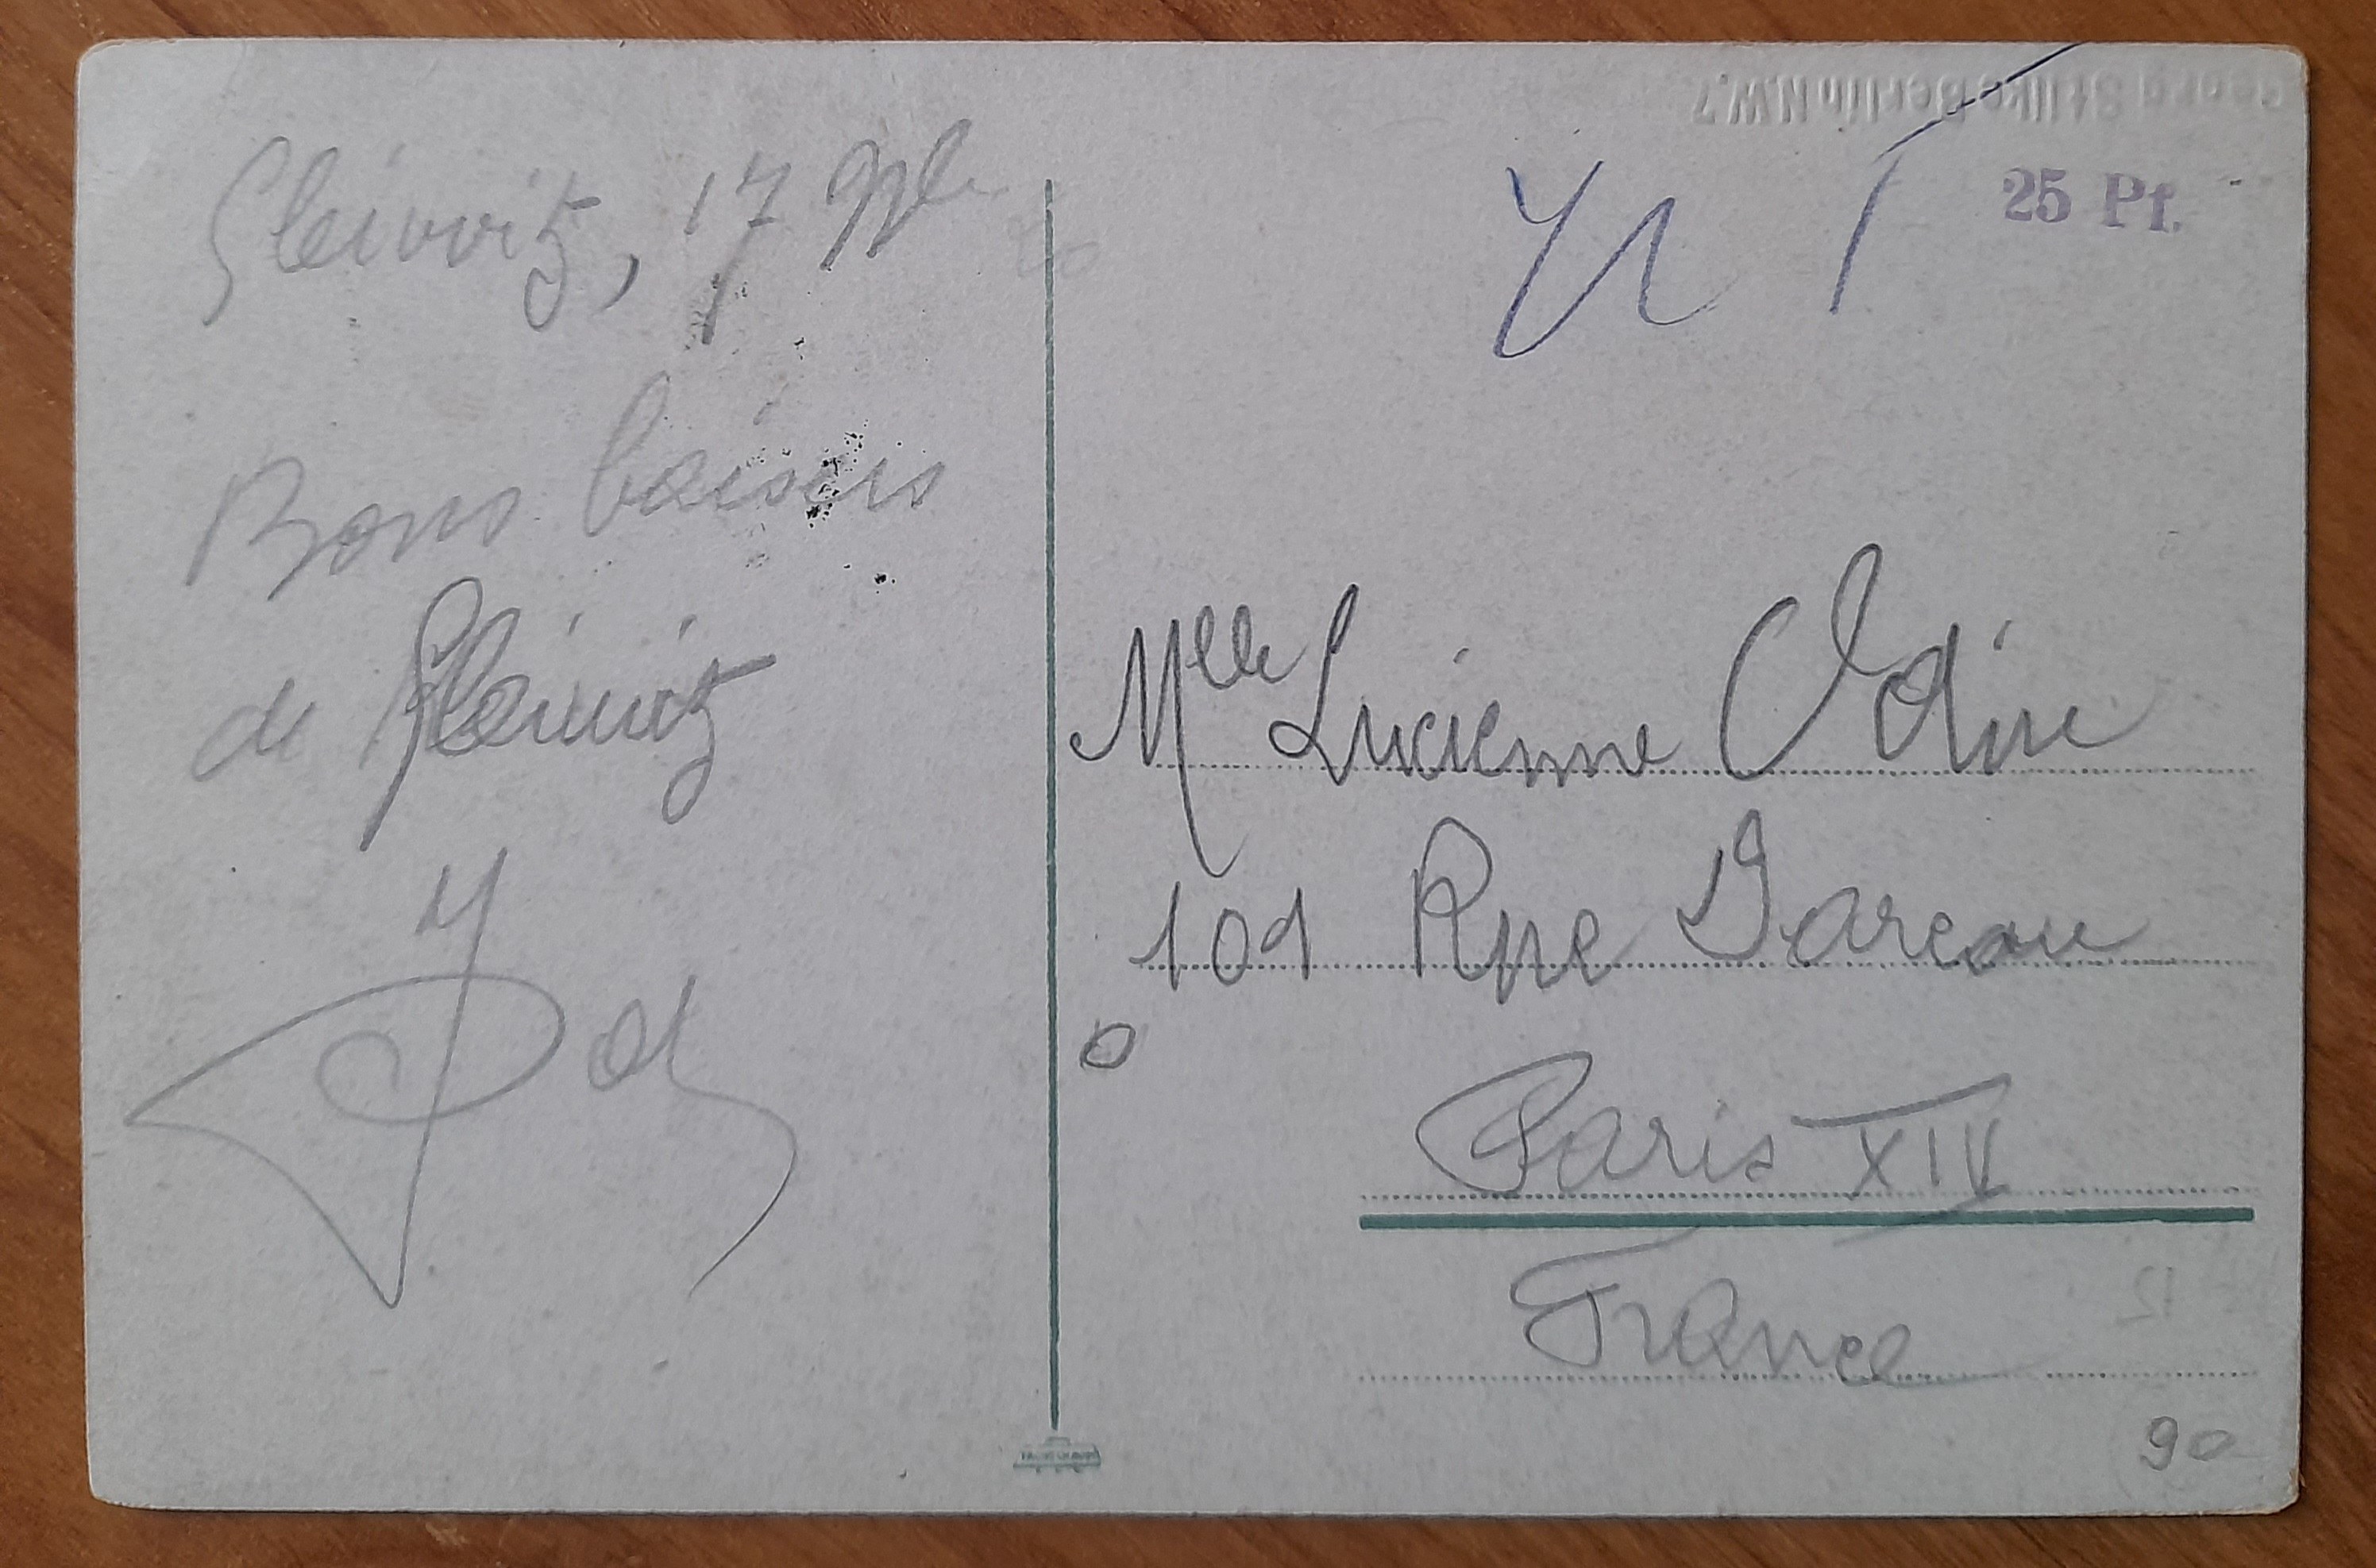 Gleiwitz, 17 9bre
20
Bons baisers
de Gleiwitz
Georg Stilke Berlin N.W.7
25 Pf.
Mlle Lucienne
101 Rue Dareau
Paris XIV
France
12
90